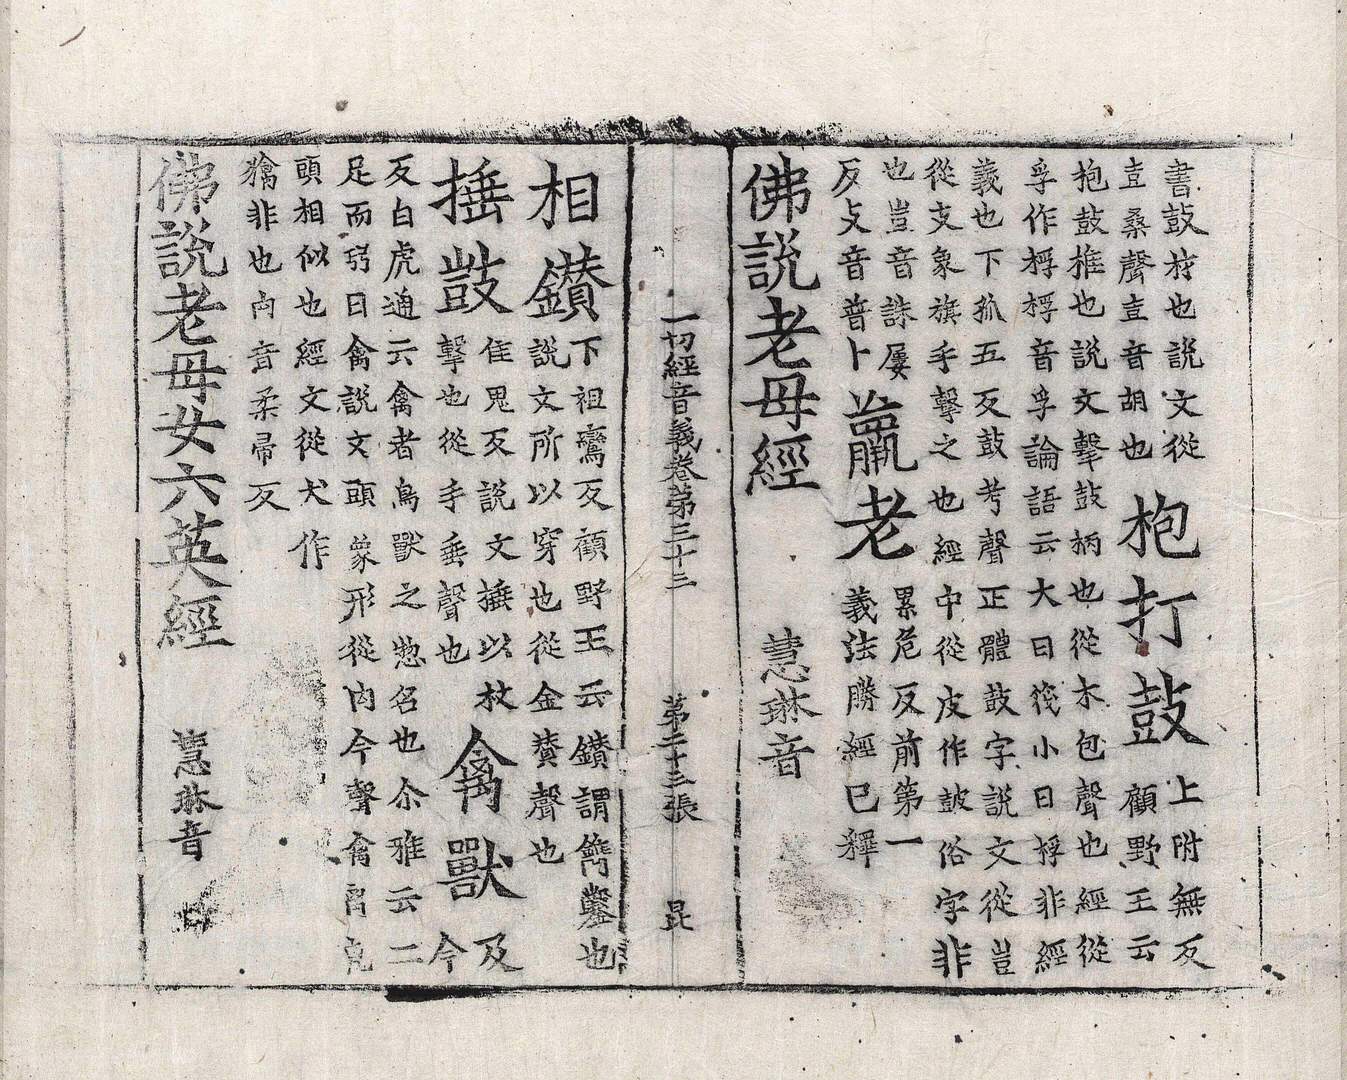 書鼓桴也說文從
壴桑聲壴音胡也
枹打鼓
上附無反
顧野王云
抱鼓椎也說文擊鼓柄也從木包聲也經從
孚作桴桴音孚論語云大曰筏小曰桴非經
義也下孤五反鼓考聲正體鼓字說文從豈
從支象旗手擊之也經中從皮作皷俗字非
也豈音誅屢
反攴音普卜
羸老
累危反前第一
義法勝經已釋
佛說老母經 慧琳音
一切經音義卷第三十三 第二十三張 昆
相鑽
下祖鸞反顧野王云鑽謂鐫鑿也
說文所以穿也從金贊聲也
捶鼓
隹累反說文捶以杖
擊也從手垂聲也
禽獸
及今
反白虎通云禽者鳥獸之惣名也尒雅云二
足而羽曰禽說文頭象形從禸今聲禽离兕
頭相似也經文從犬作
㺈非也禸音柔帚反
佛說老母女六英經 慧琳音